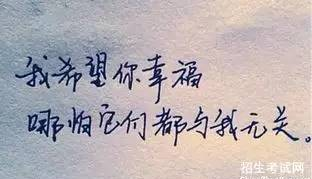 我希望你幸福
哪怕它何都与我无关。
招生考试网